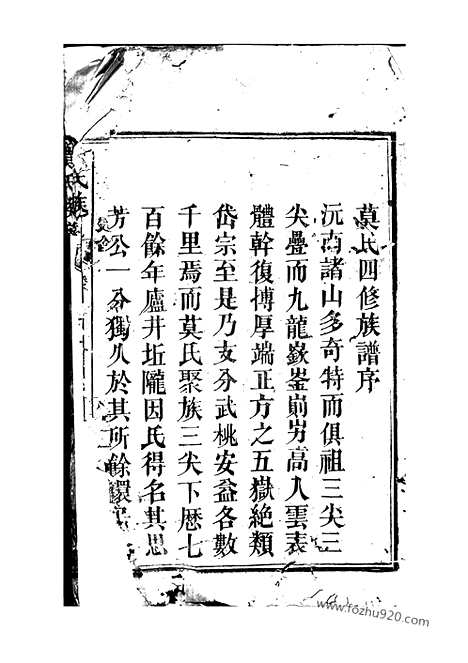 莫氏四修族譜序
沅南諸山多奇特而俱祖三尖三
尖疊而九龍嶽崟崱屴高入雲表
體幹復博厚端正方之五嶽絶類
岱宗至是乃支分武桃安益各數
千里焉而莫氏聚族三尖下歷七
百餘年廬井坵隴因氏得名其思
芳公一分獨久於其所餘環
氏族
www.fozhu920.com